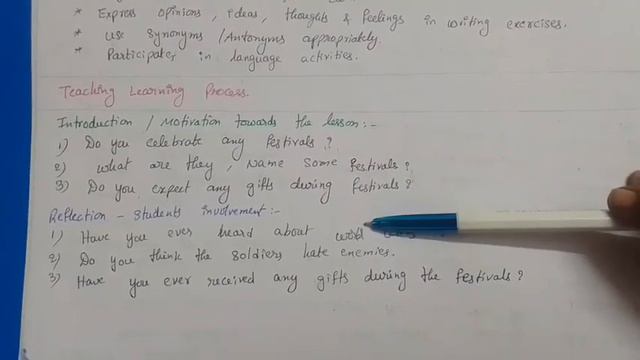 * Express opinions, ideas, thoughts & feelings in writing exercises.
* Use synonyms / Antonyms appropriately.
* Participates in language activities.
Teaching Learning Process.
Introduction / Motivation towards the lesson:-
1) Do you celebrate any festivals?
2) what are they, Name some festivals?
3) Do you expect any gifts during festivals?
Reflection - Students involvement:-
1) Have you ever heard about
2) Do you think the soldiers hate enemies.
3) Have you ever received any gifts during the festivals?